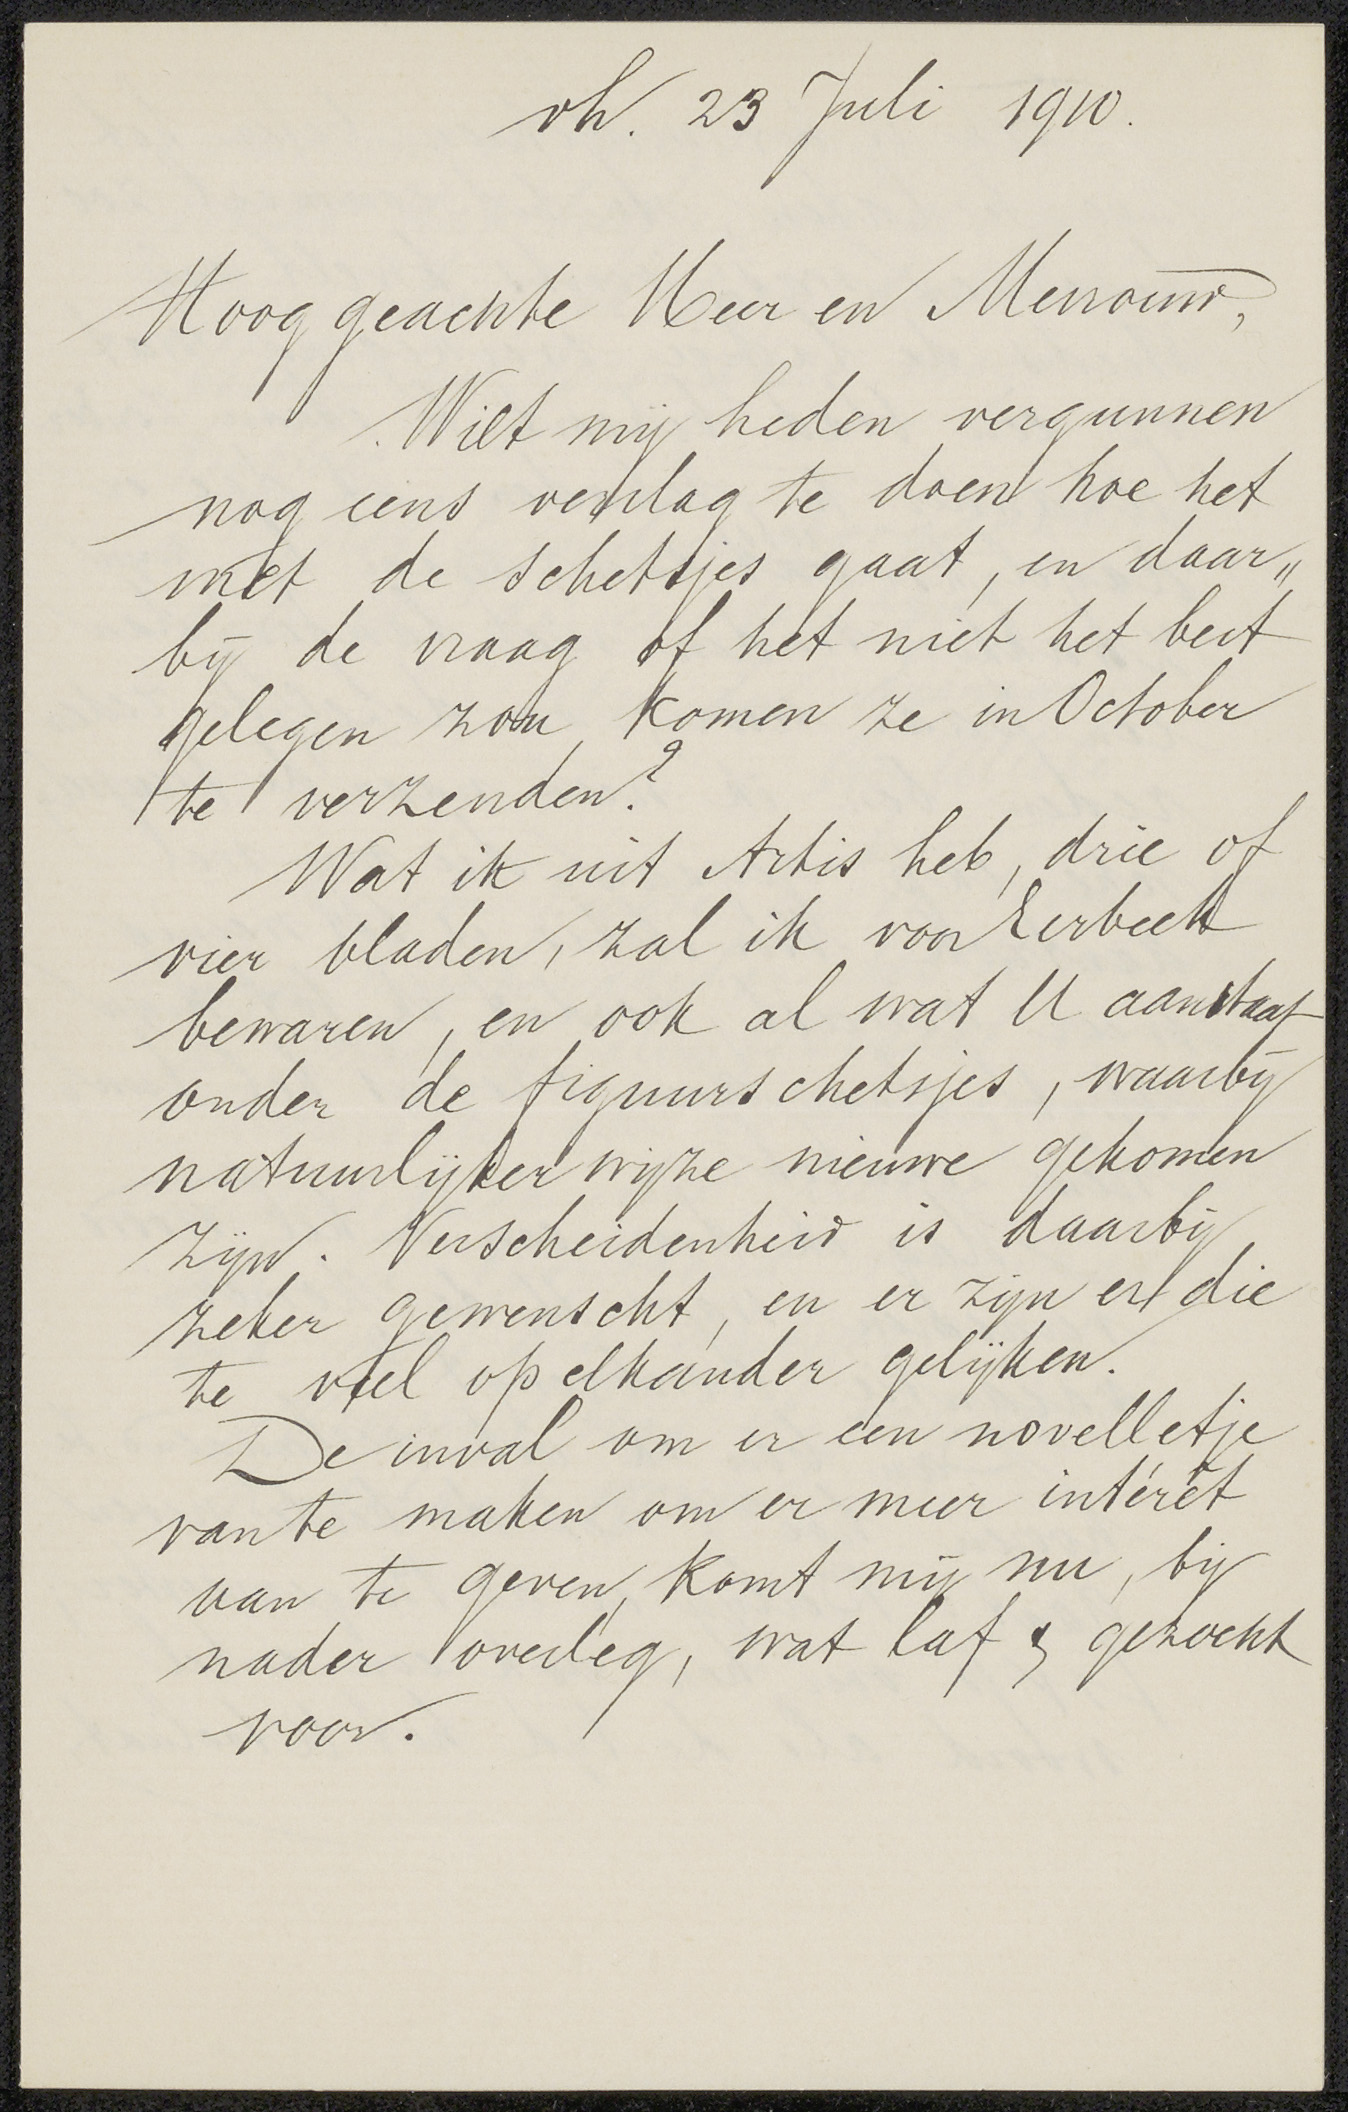 vh. 23 Juli 1910.
Hooggeachte Heer en Mevrouw,
Wilt mij heden vergunnen
nog eens verslag te doen hoe het
met de schetsjes gaat, en daar„
bij de vraag of het niet het best
gelegen zou komen ze in October
te verzenden?
Wat ik uit Artis heb, drie of
vier bladen, zal ik voor Eerbeek
bewaren, en ook al wat U aanstaat
onder de figuurschetsjes, waarbij
natuurlijker wijze nieuwe gekomen
zijn. Verscheidenheid is daarbij
zeker gewenscht, en er zijn er die
te veel op elkander gelijken.
De inval om er een novelletje
van te maken om er meer intérêt
aan te geven, komt mij nu, bij
nader overleg, wat laf & gezocht
voor.